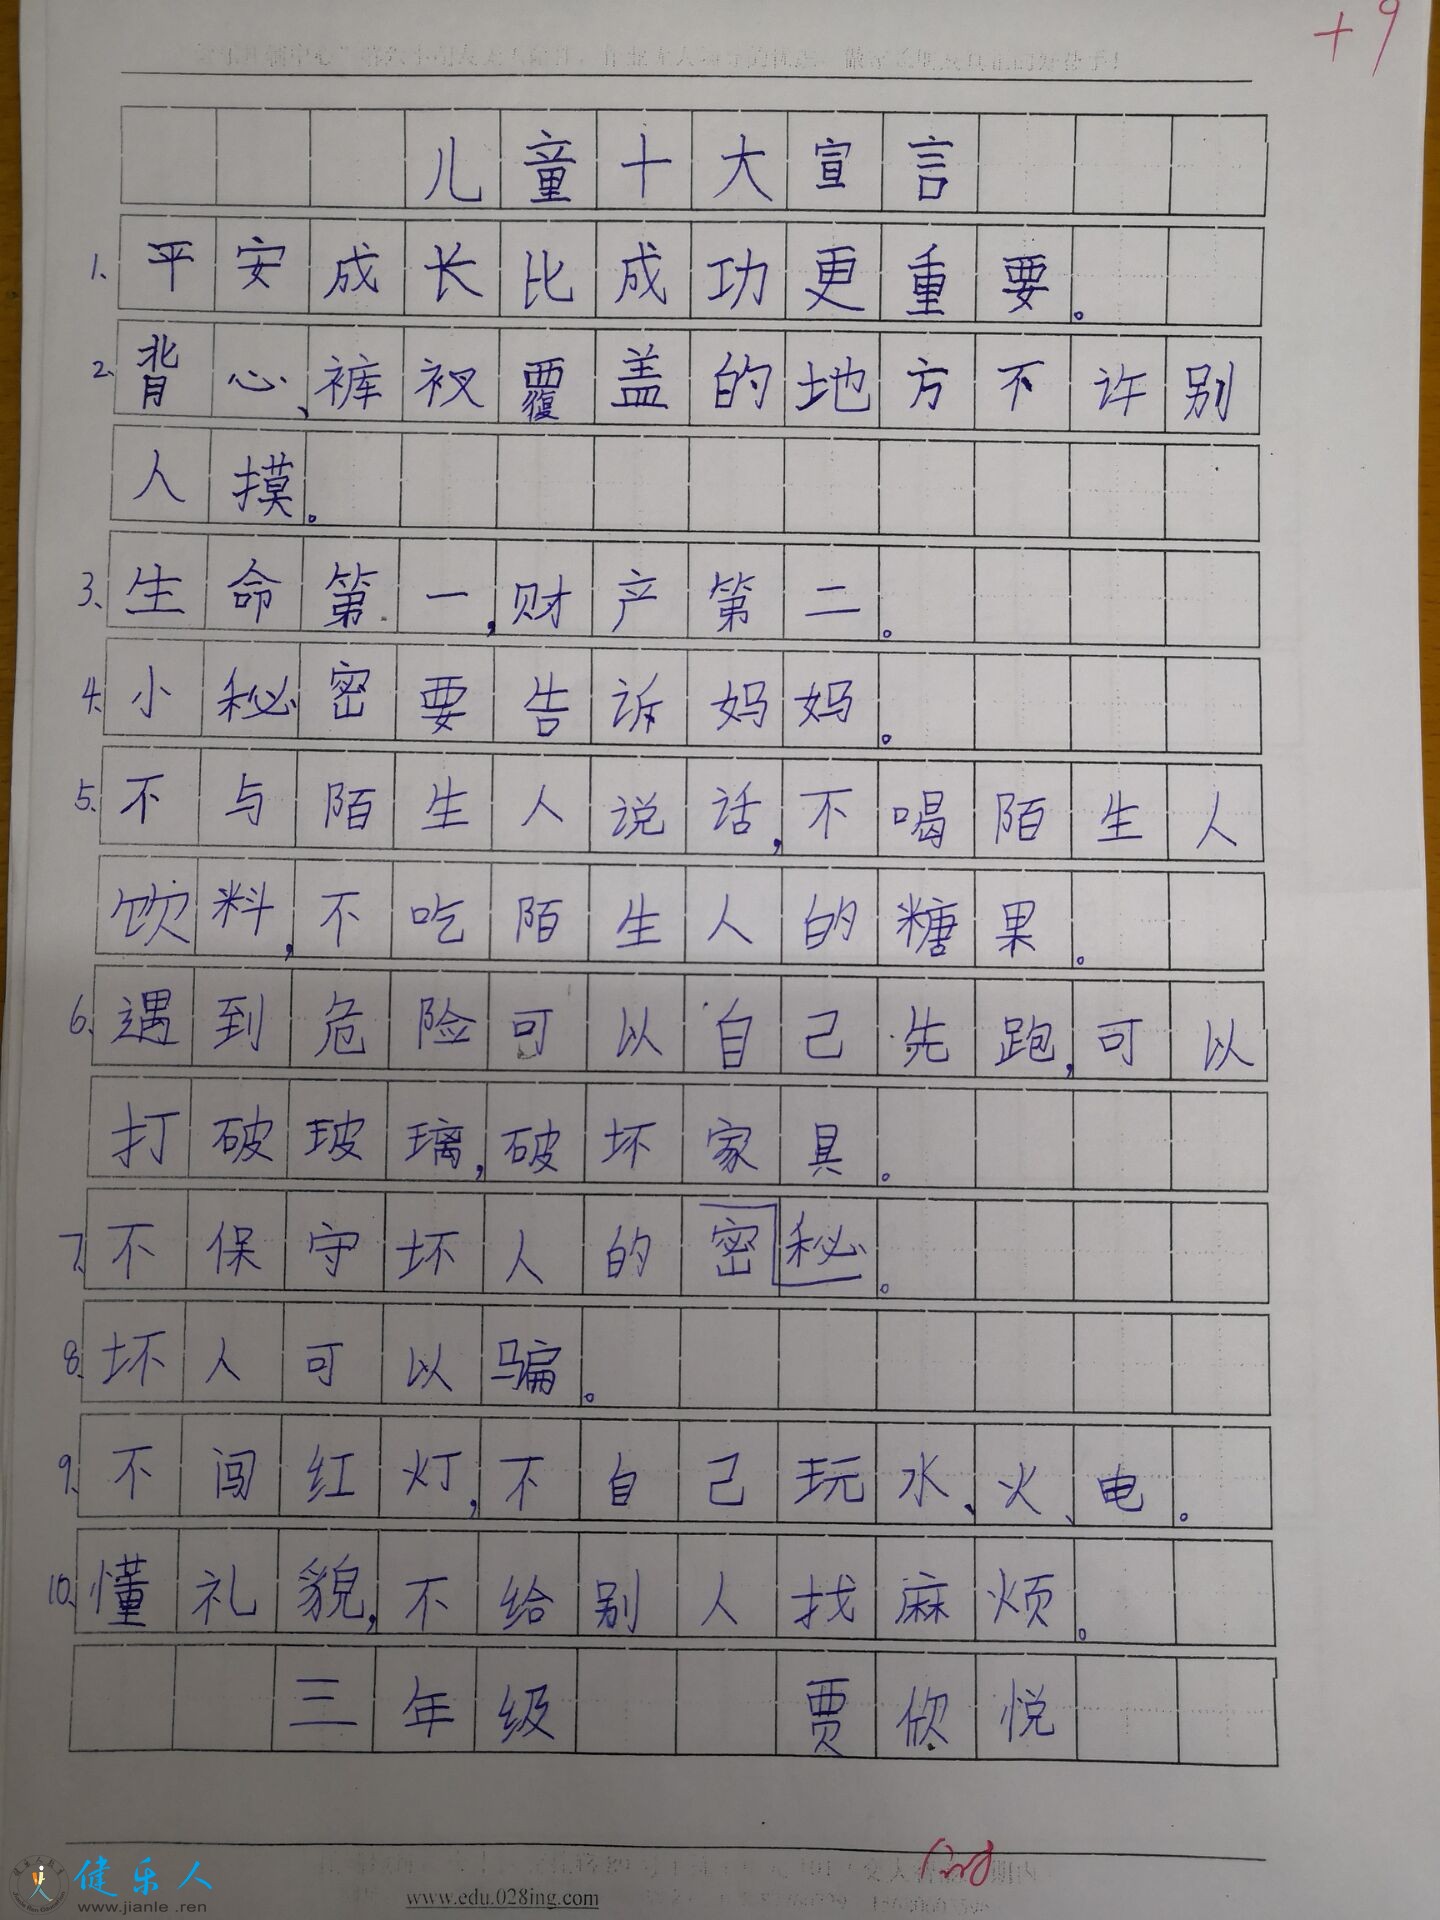 +9
儿童十大宣言
1、平安成长比成功更重要。
2、背心、裤衩覆盖的地方不许别
人摸。
3、生命第一,财产第二。
4、小秘密要告诉妈妈。
5、不与陌生人说话,不喝陌生人
饮料,不吃陌生人的糖果。
6、遇到危险可以自己先跑,可以
打破玻璃,破坏家具。
7、不保守坏人的密秘。
8、坏人可以骗。
9、不闯红灯,不自己玩水、火、电。
10、懂礼貌,不给别人找麻烦。
三年级 贾欣悦
健乐人
www.jianle.ren
www.edu.028ing.com